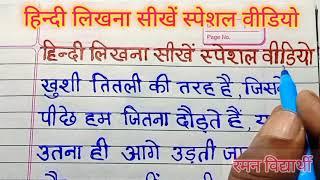 हिन्दी लिखना सीखें स्पेशल वीडियो
Page No.
हिन्दी लिखना सीखें स्पेशल वीडियो
खुशी तितली की तरह है, जिसके
पीछे हम जितना दौड़ते हैं,
उतना ही आगे उड़ती
रमन विद्यार्थी